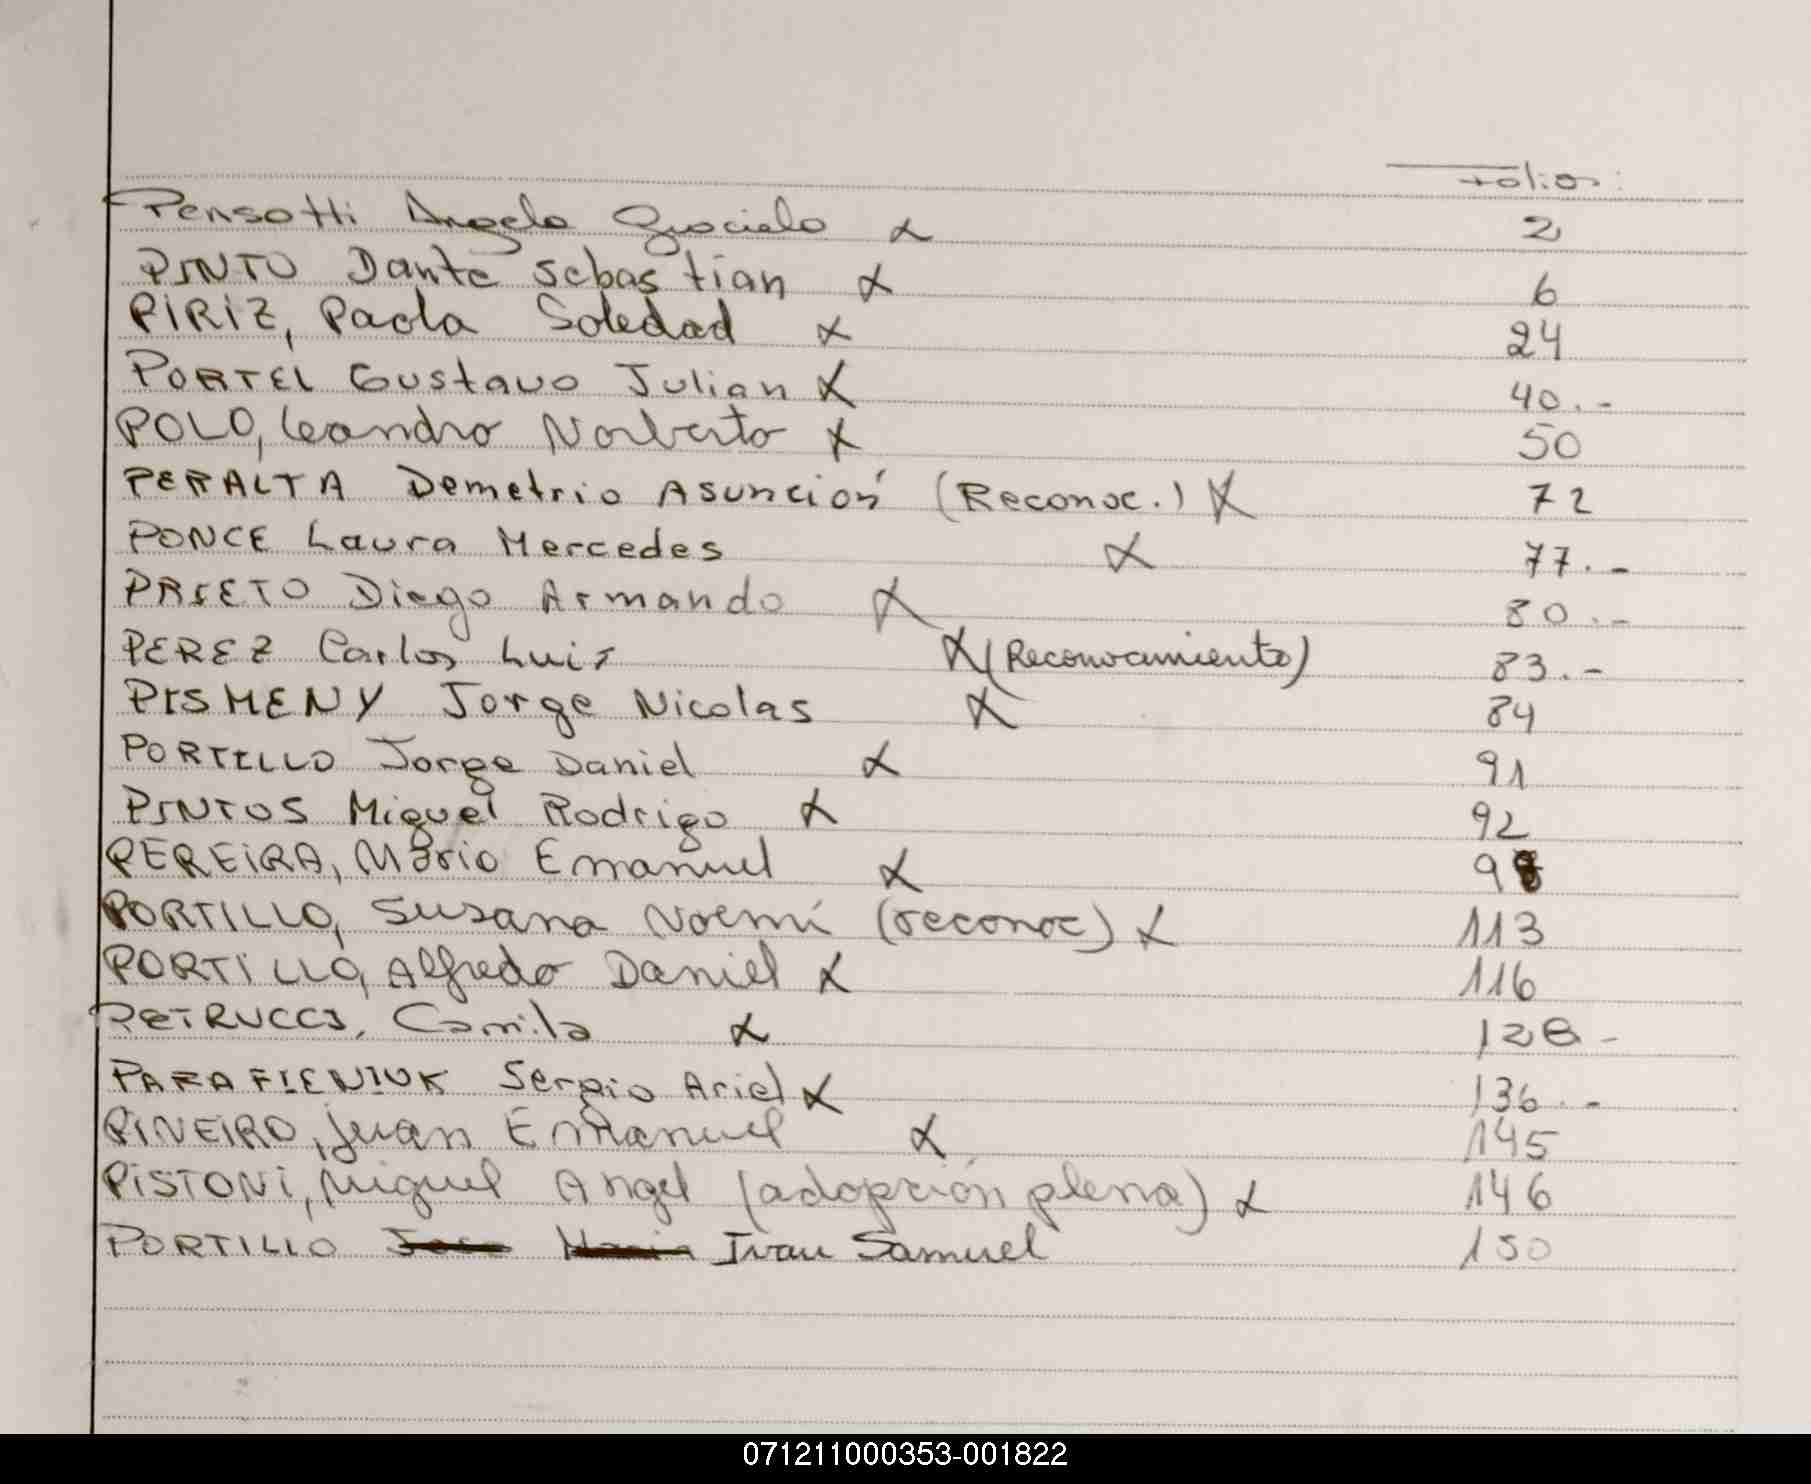 Folios:
Pensotti Angela Graciela x 2
PINTO Dante Sebastian x 6
PIRIZ, Paola Soledad x 24
PORTEL Gustavo Julian x 40.-
POLO, Leandro Norberto x 50
PERALTA Demetrio Asunción (Reconoc.) x 72
PONCE Laura Mercedes x 77.-
PRIETO Diego Armando x 80.-
PEREZ Carlos Luis x (Reconocamiento) 83.-
PISMENY Jorge Nicolas x 84
PORTILLO Jorge Daniel x 91
PINTOS Miguel Rodrigo x 92
PEREIRA, Mario Emanuel x 98
PORTILLO, Susana Noemí (reconoc) x 113
PORTILLO, Alfredo Daniel x 116
PETRUCCI, Camila x 128-
PARAFIENIUK Sergio Ariel x 136.-
PINEIRO, Juan Emanuel x 145
PISTONI, Miguel Angel (adopción plena) x 146
PORTILLO Ivan Samuel 150
071211000353-001822